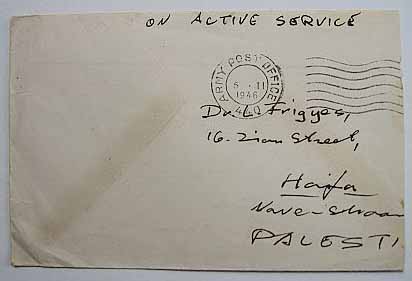 ON ACTIVE SERVICE
ARMY POST OFFICE
5 · 11
1946
Dr. L. Frigyes,
16. Zion Street,
Haifa
PALESTI